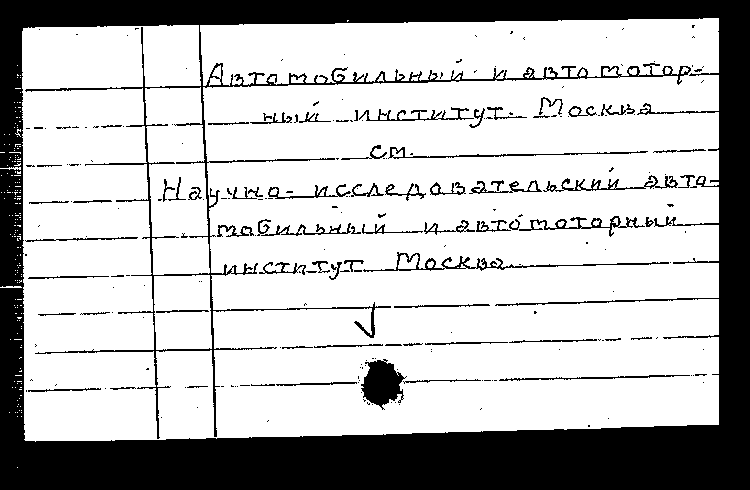 Автомобильный и автомотор-
ный институт. Москва
см.
Научно-исследовательский авто-
мобильный и автомоторный
институт Москва